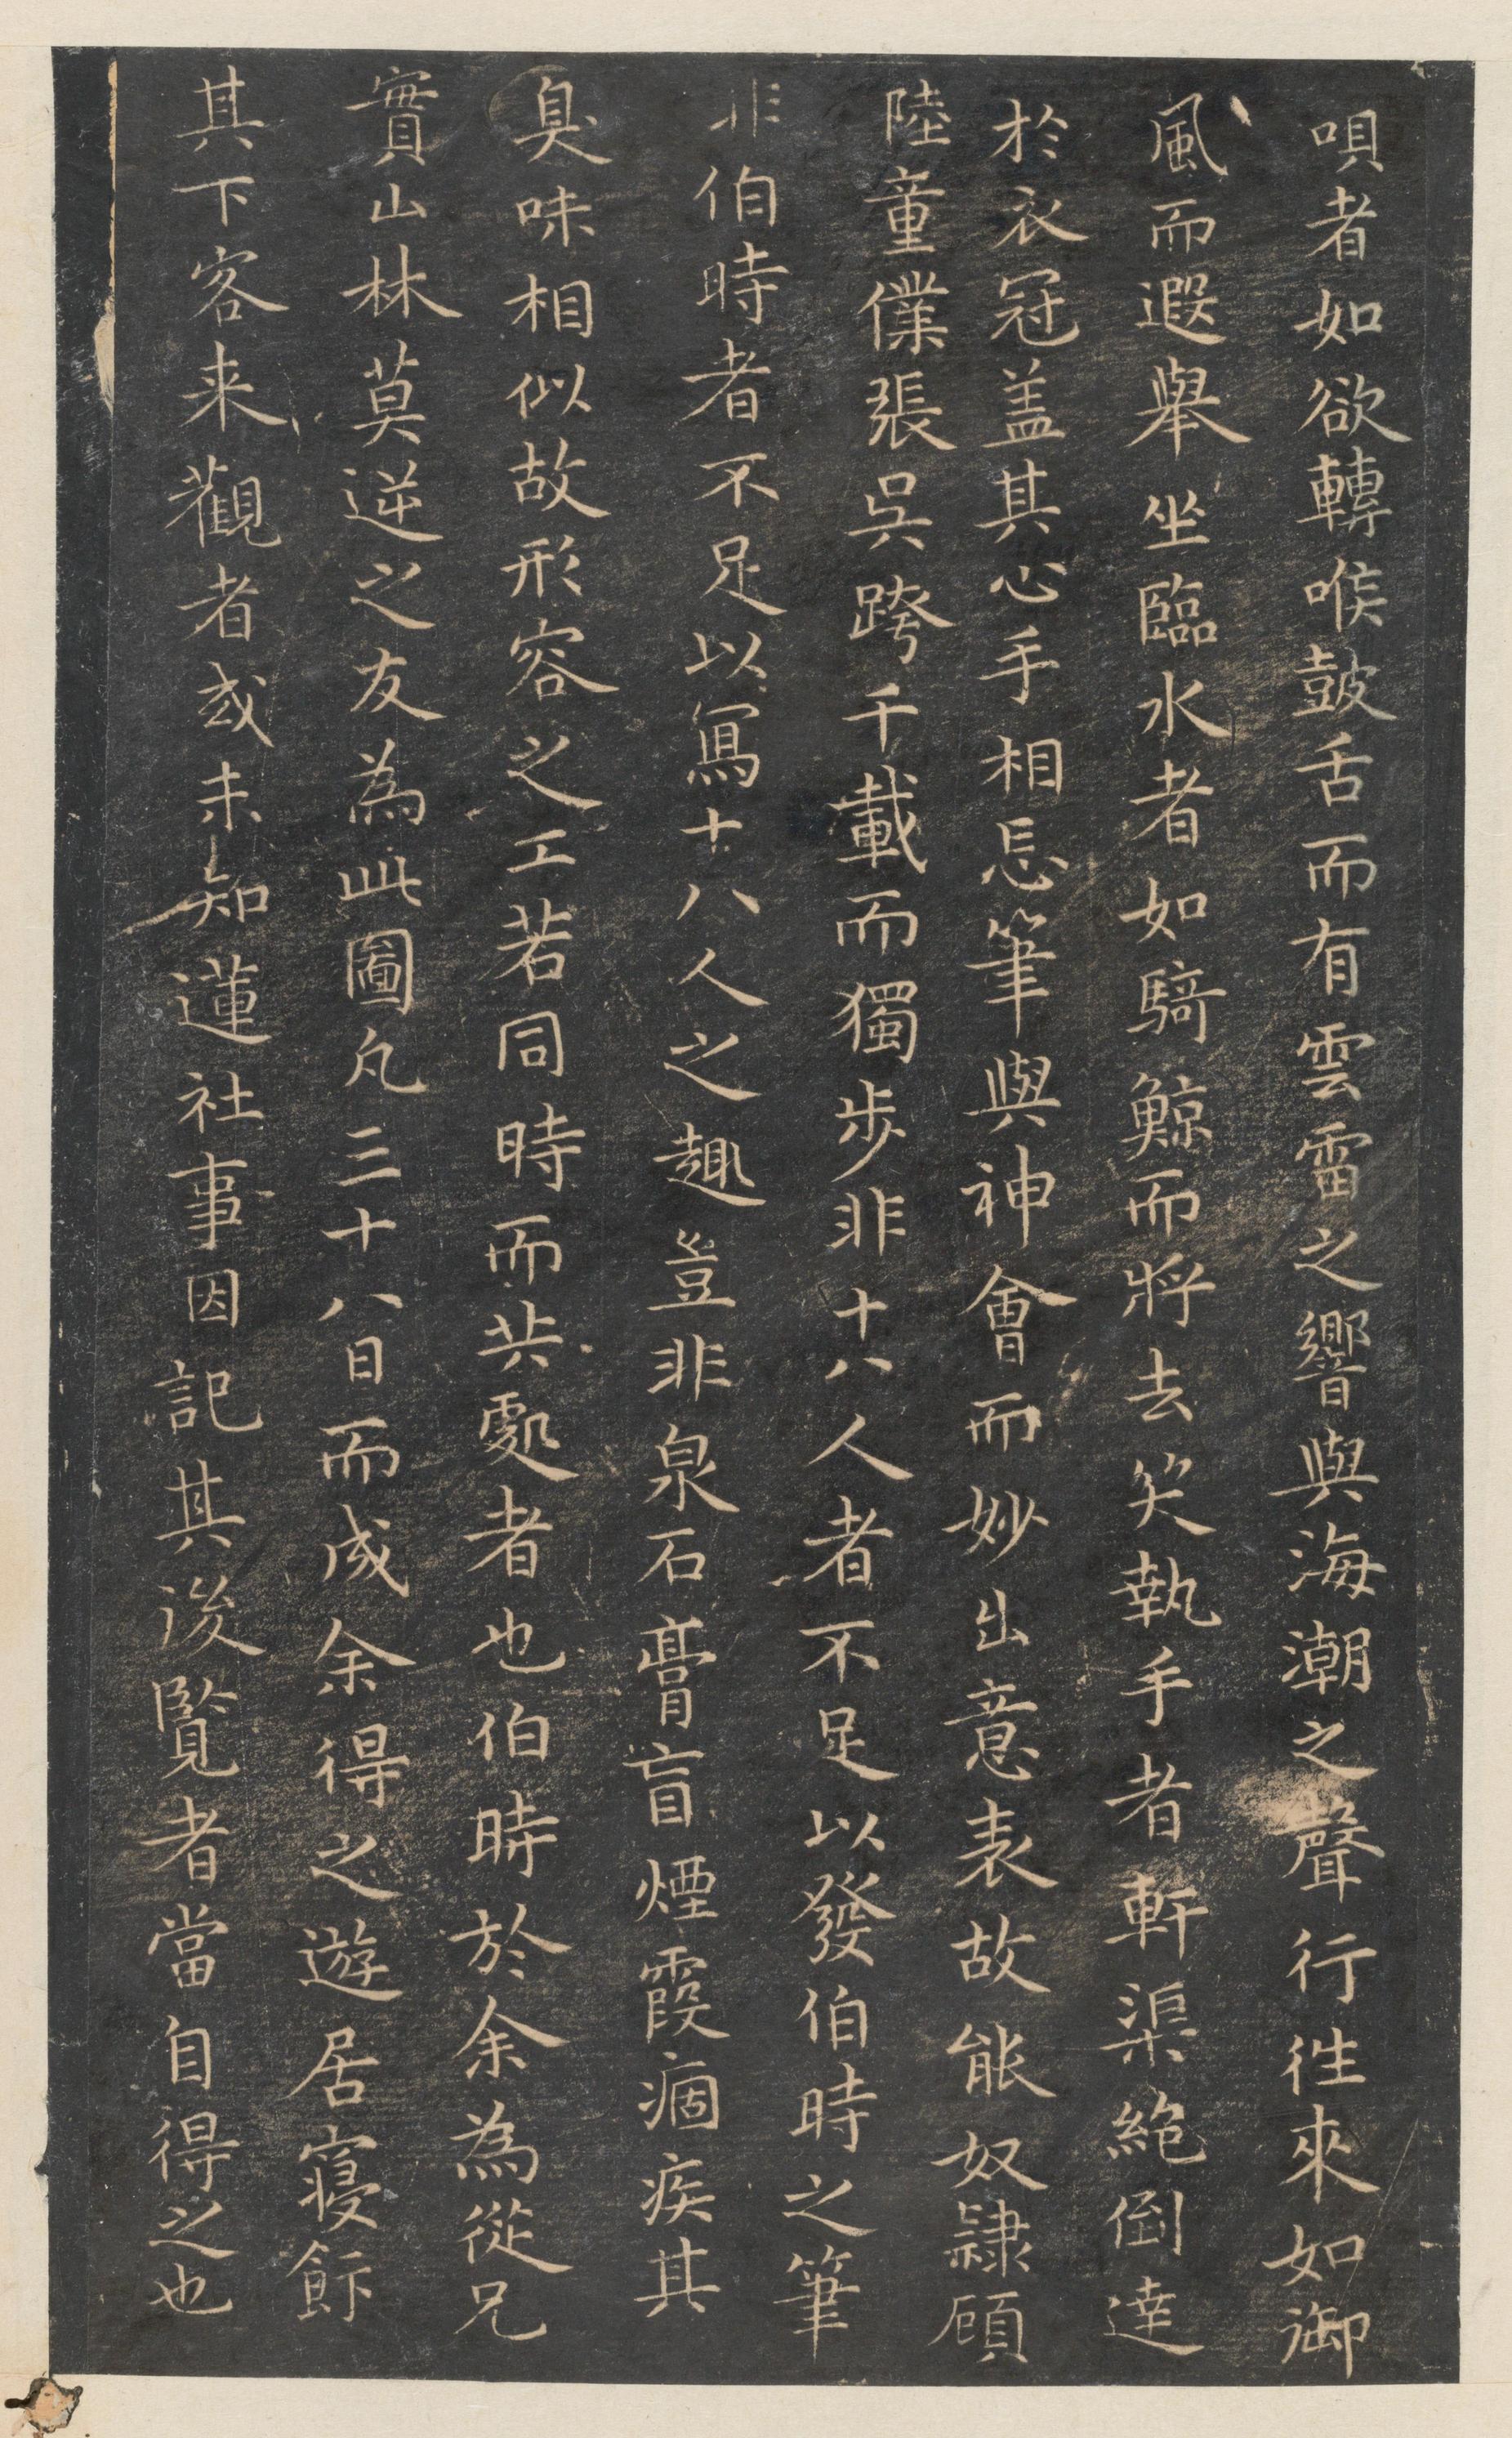 唄者如欲轉喉鼓舌而有雲雷之響與海潮之聲行往來如御
風而遐舉坐臨水者如騎鯨而將去笑執手者軒渠絶倒達
於衣冠盖其心手相忘筆與神會而妙出意表故能奴隷顧
陸童僕張吳跨千載而獨步非十八人者不足以發伯時之筆
非伯時者不足以寫十八人之趣豈非泉石膏肓煙霞痼疾其
臭味相似故形容之工若同時而共處者也伯時於余為從兄
實山林莫逆之友為此圖凡三十八日而成余得之遊居寢飭
其下客来觀者或未知蓮社事因記其後覽者當自得之也